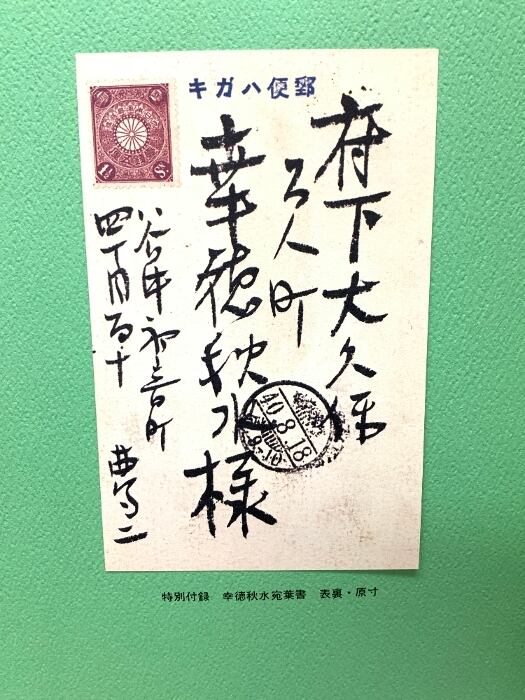 郵便ハガキ
府下大久保
百人町
幸徳秋水様
谷中初音町
四丁目百十
1½
Sn
40.8.18
特別付録　幸徳秋水宛葉書　表裏・原寸